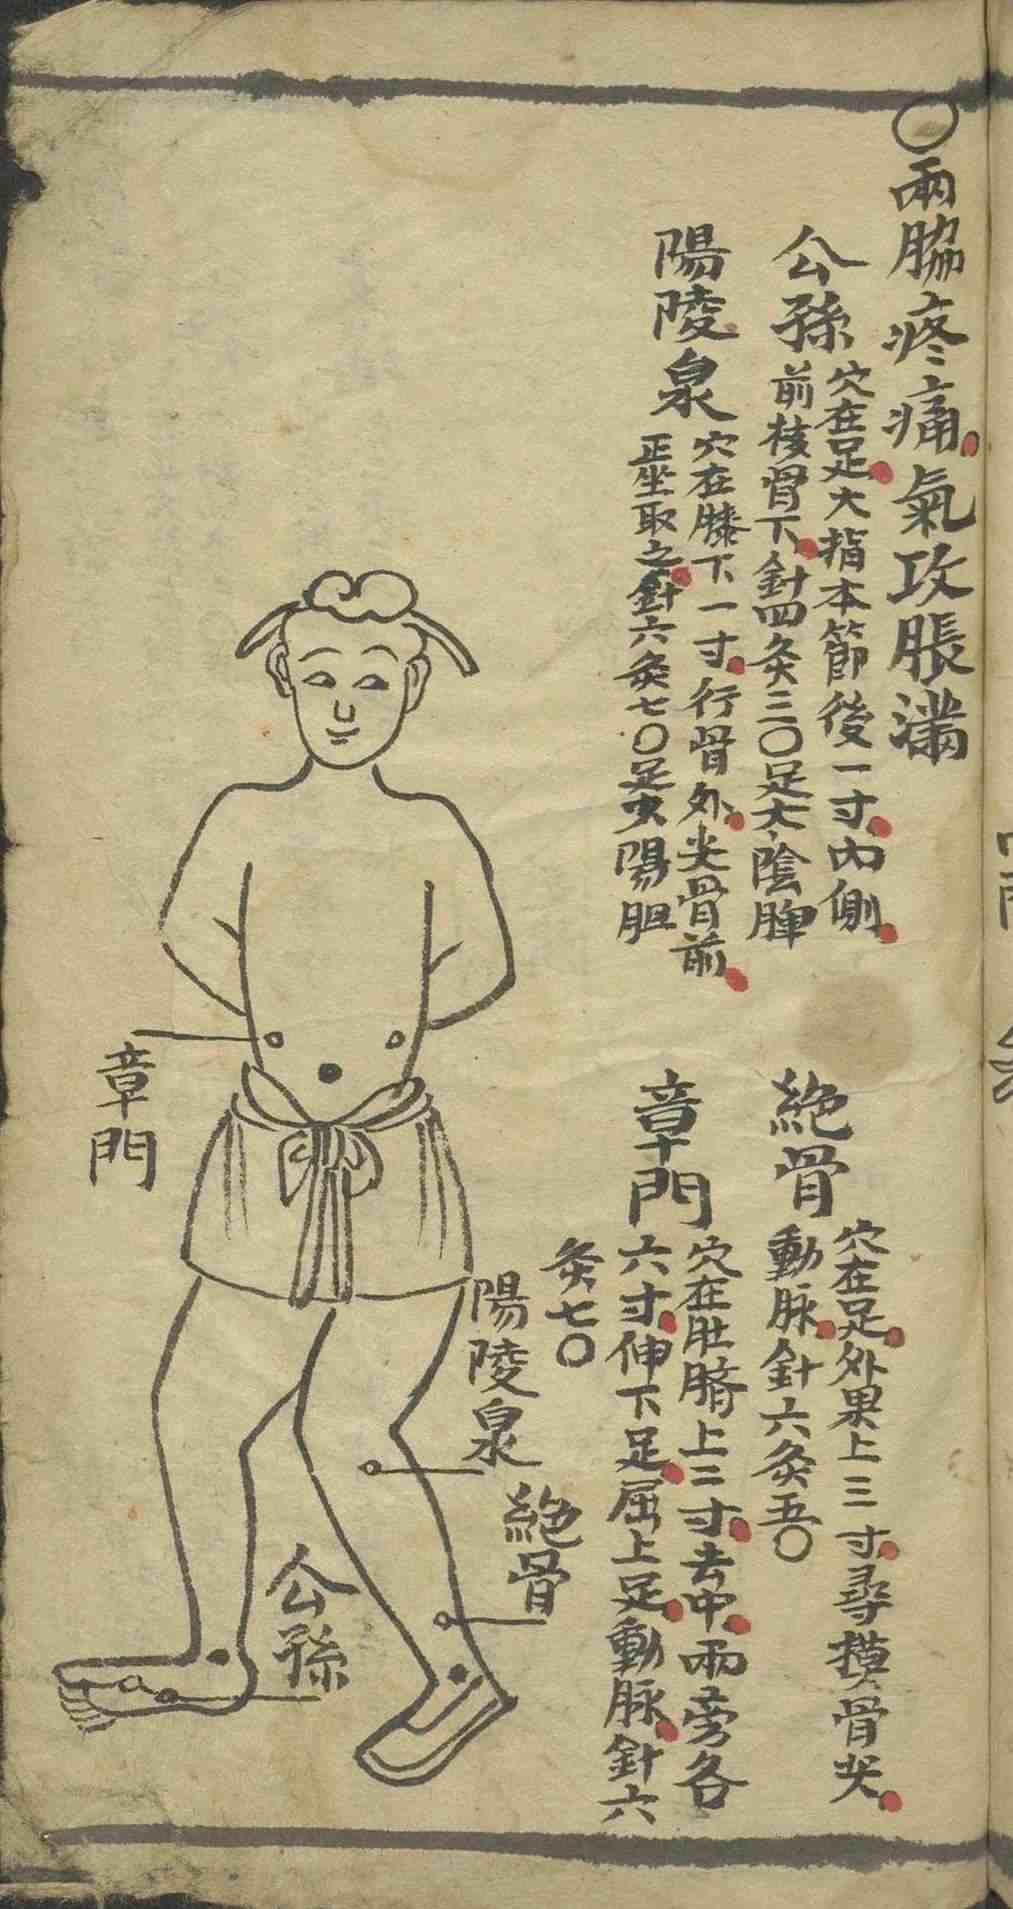 ○兩脇疼痛氣攻脹滿
公孫
穴在足大指本節後一寸內側
前核骨下針四灸三〇足太陰脾
陽陵泉
穴在膝下一寸行骨外尖骨前
正坐取之針六灸七〇足少陽胆
絶骨
穴在足外果上三寸尋摸骨尖
動脉針六灸五〇
章門
穴在肚臍上二寸去中兩旁各
六寸伸下足屈上足動脉針六
灸七〇
章門
陽陵泉
絶骨
公孫